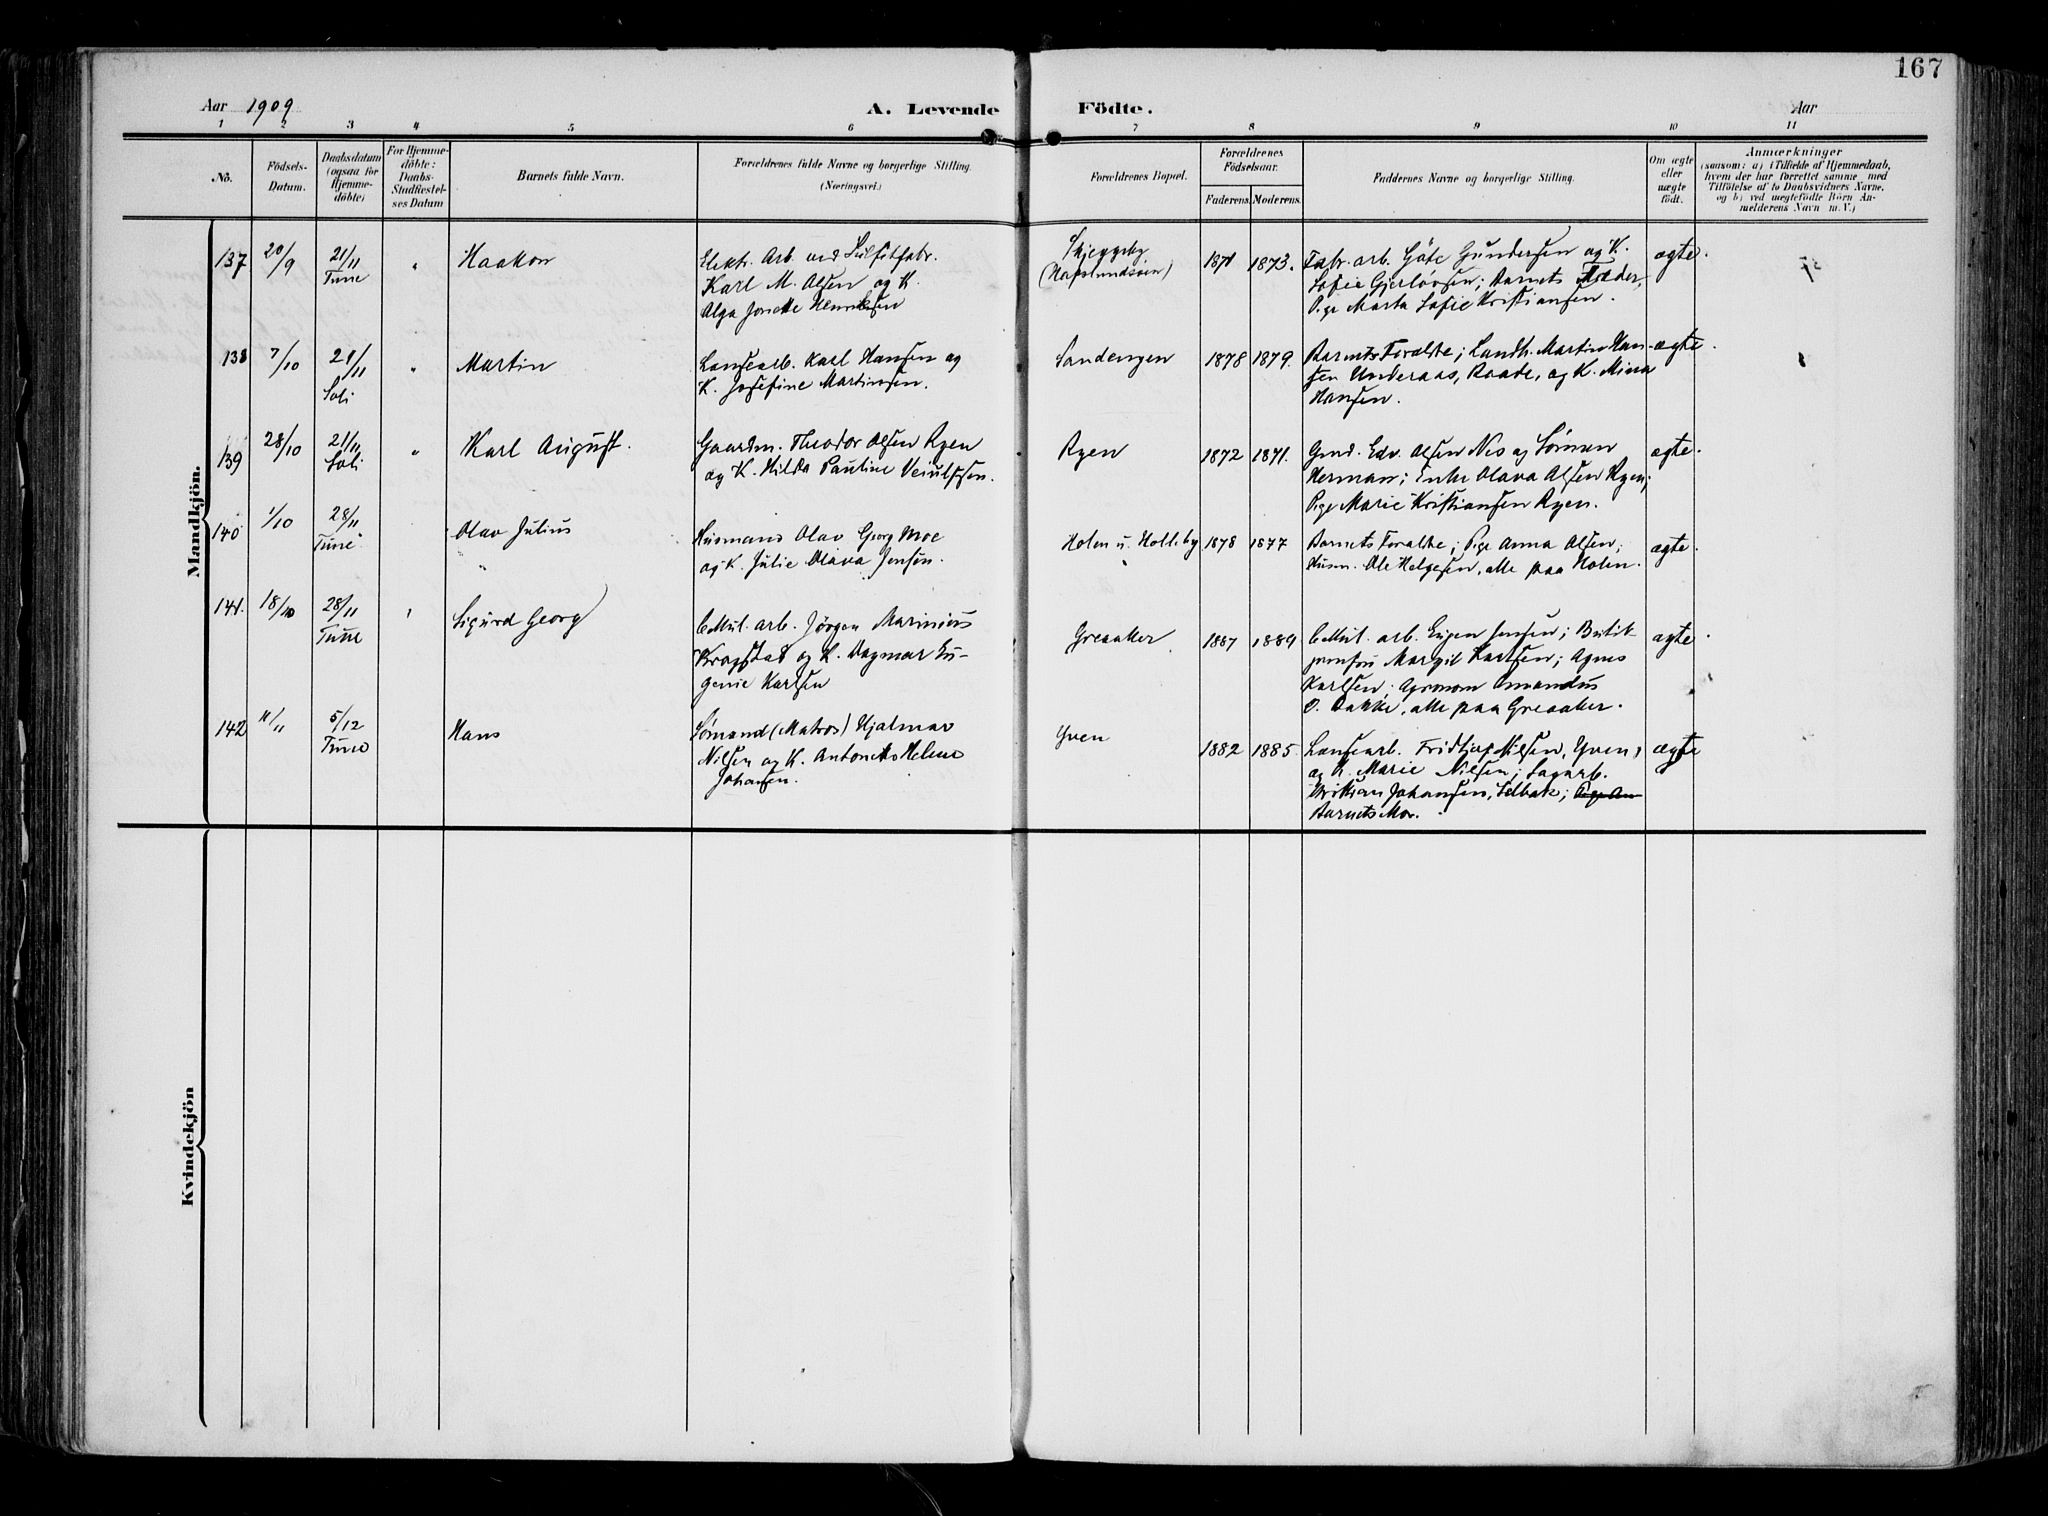 167
Aar 1909
A. Levende Födte.
Aar
1 2 3 4 5 6 7 8 9 10 11
No.
Födsels-
Datum.
Daabsdatum
(ogsaa for
Hjemme-
döbte)
For Hjemme-
döbte:
Daabs-
Stadfæstel-
ses Datum
Barnets fulde Navn.
Forældrenes fulde Navne og borgerlige Stilling.
(Næringsvei.)
Forældrenes Bopæl.
Forældrenes
Födselsaar.
Faderens. Moderens.
Faddernes Navne og borgerlige Stilling.
Om ægte
eller
uægte
födt.
Anmærkninger
(saasom: a) i Tilfælde af Hjemmedaab,
hvem der har forrettet samme, med
Tilföielse af to Daabsvidners Navne,
og b) ved uægtefödte Börn An-
melderens Navn m. V.)
Mandkjön.
137 20/9 21/11 Tune " Haakon
Elektr. Arb. ved Sulfitfabr.
Karl M. Olsen og K.
Alga Jonette Henriksen
Skjeggeby
(Hafslundsöen)
1871 1873.
Fabr. arb. Göte Gundersen og K.
Sofie Gjerlövsen; Barnets Fader,
Pige Marta Sofie Kristiansen.
ægte.
138 7/10 21/11 Soli " Martin
Landsearb. Karl Hansen og
K. Josefine Martinsen.
Sandengen
1878 1879.
Barnets Foraldre; Landh. Martin Han-
sen Underaas, Raade, og K. Mina
Hansen.
ægte.
139 28/10 21/11 Soli " Karl August.
Gaardm. Theodor Olsen Ryen
og K. Hilda Pauline Veiulfsen.
Ryen
1872 1871.
Gmd. Edv. Olsen Nes og Sönnen
Herman; Enke Olava Olsen Ryen;
Pige Marie Kristiansen Ryen.
ægte.
140 1/10 28/11 Tune Olav Julius "
Husmand Olav Georg Moe
og K. Julie Olava Jensen.
Holen u. Holleby
1878 1877
Barnets Foraldre; Pige Anna Olsen;
Husm. Ole Helgesen, alle paa Holen.
ægte.
141. 18/10 28/11 Tune " Sigurd Georg
Cellul. arb. Jörgen Marinius
Krogstad og K. Dagmar Eu-
genie Karlsen
Greaaker
1887 1889
Cellul. arb. Eugen Jensen; Butik-
jomfru Margit Karlsen; Agnes
Karlsen; Agronom Amandus
O. Bakke, alle paa Greaaker.
ægte.
142 11/11 5/12 Tune Hans
Sømand (Matros) Hjalmar
Nilsen og K. Antonette Helene
Johansen.
Yven
1882 1885.
Landsearb. Fridtjof Nilsen, Yven,
og K. Marie Nilsen; Sagarb.
Kristian Johansen, Selbak;
Barnets Mor.
ægte
Kvindekjön